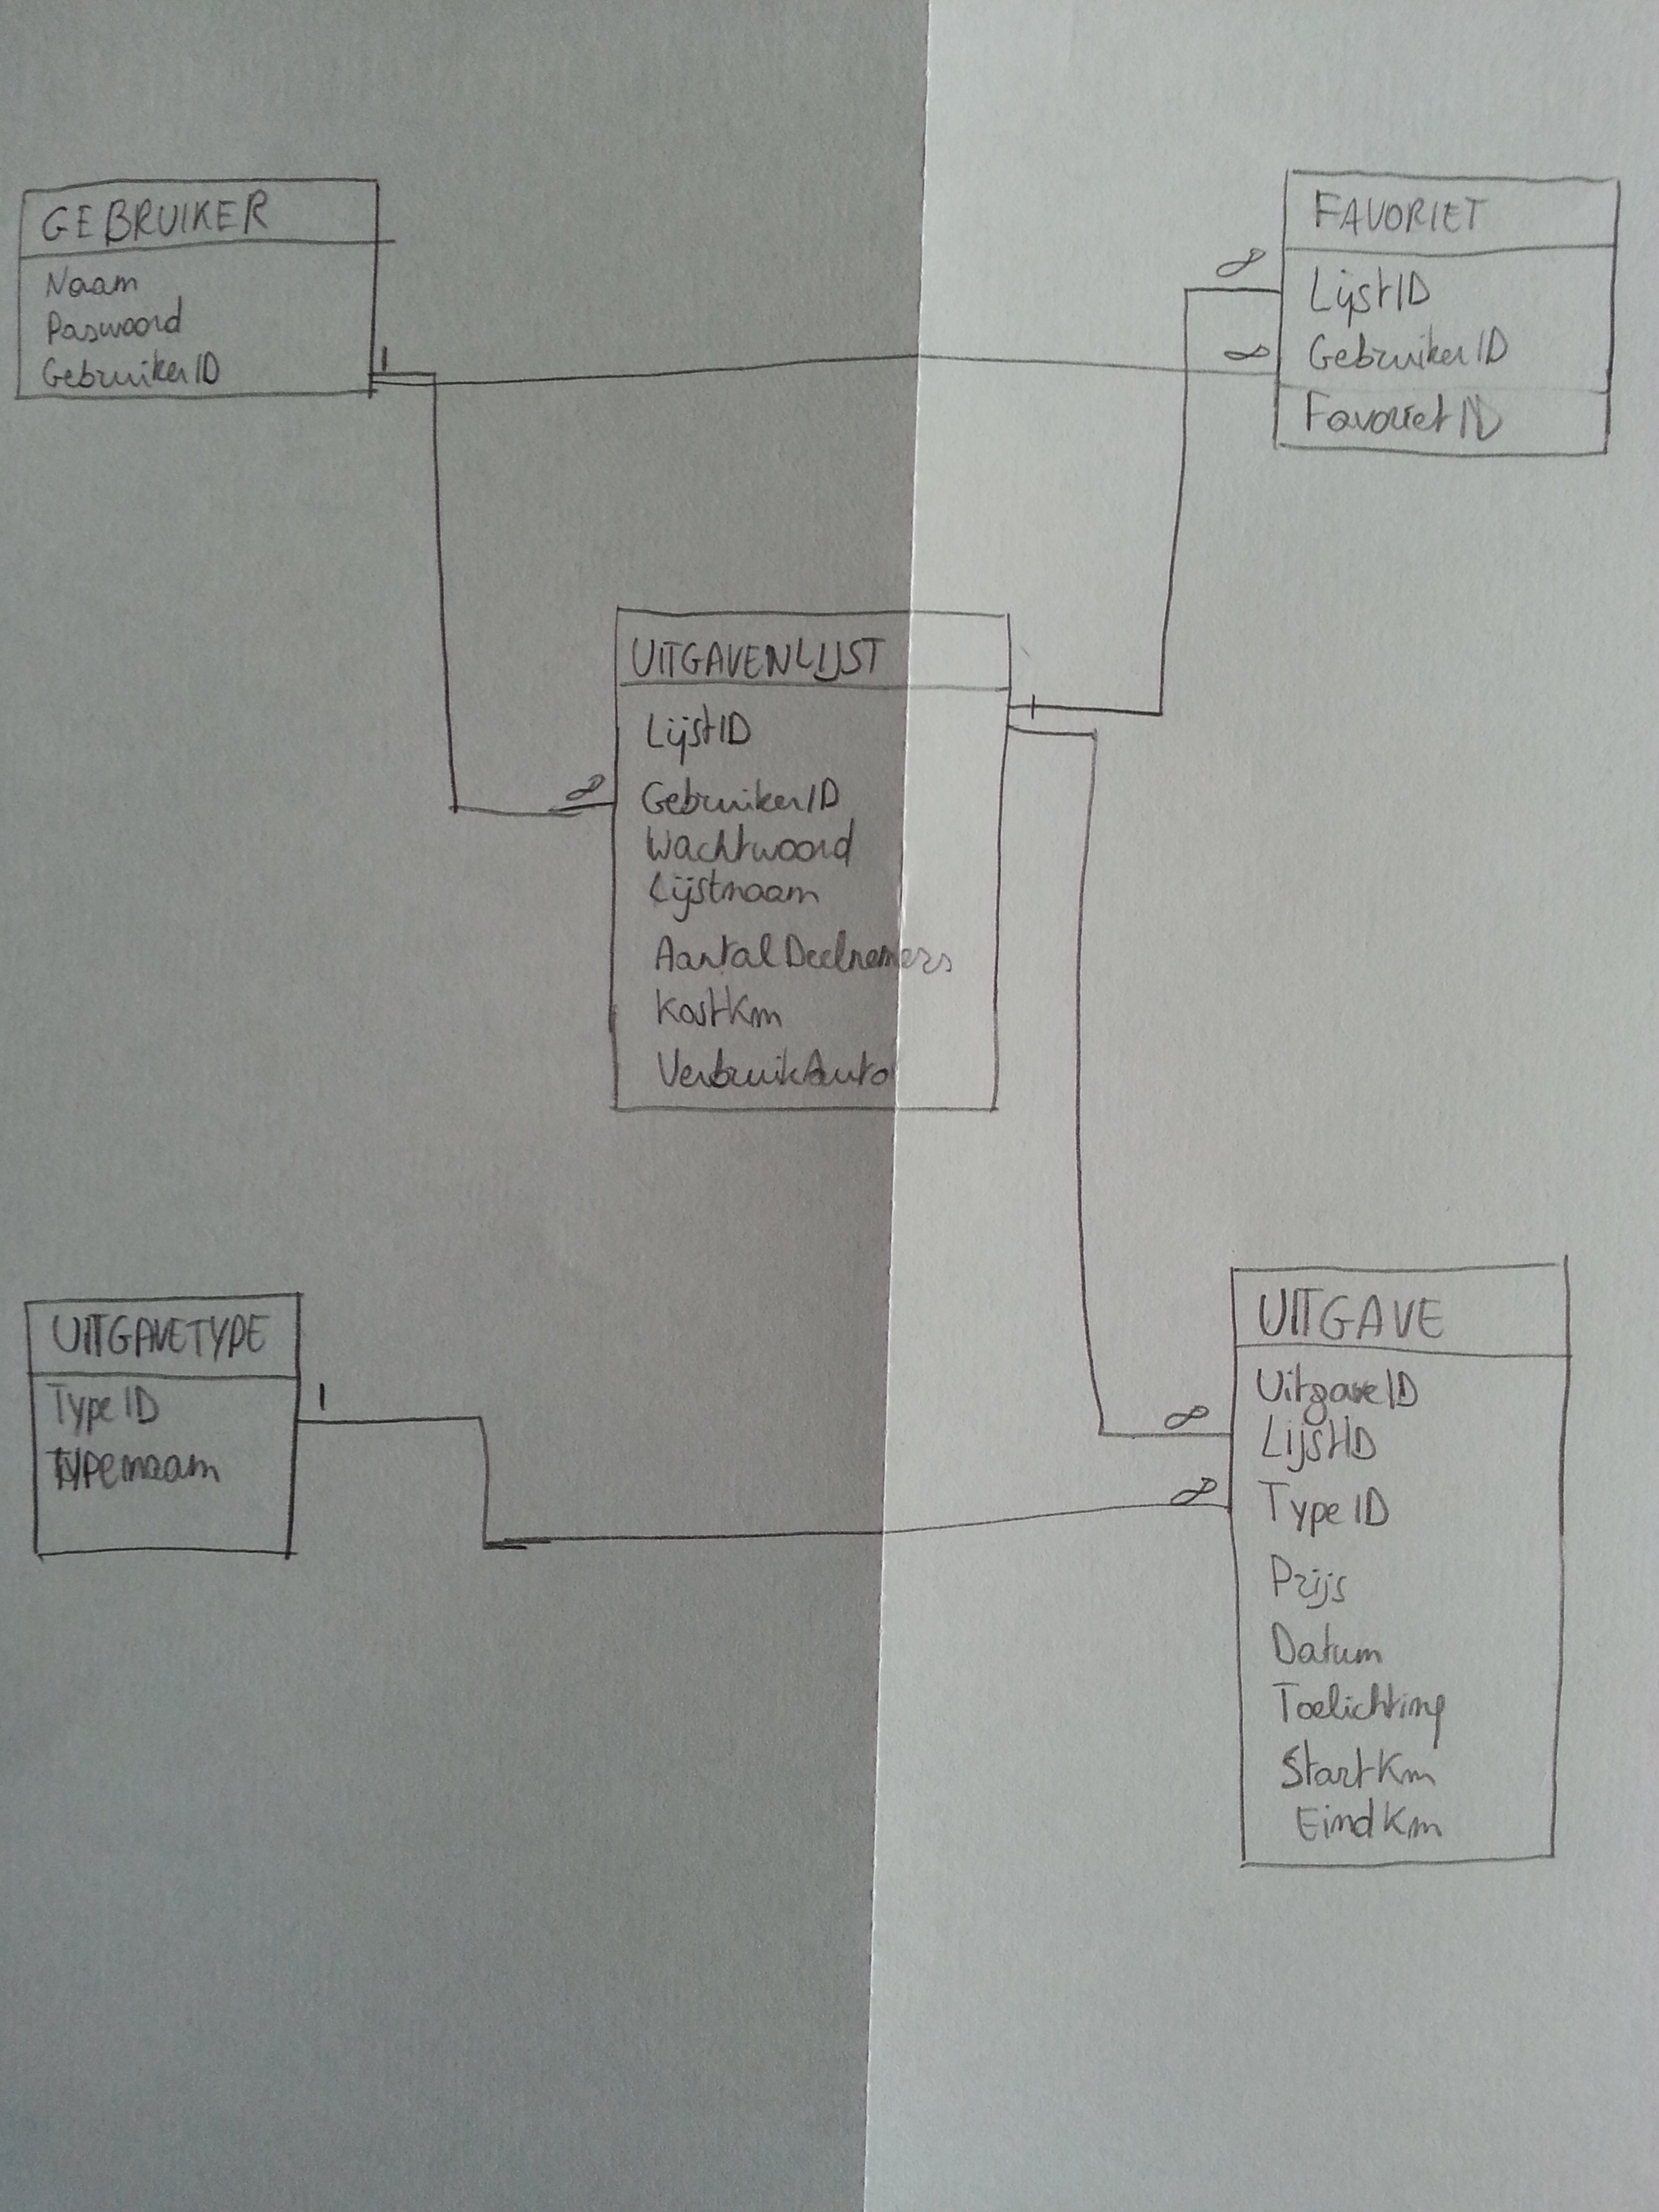 GEBRUIKER
Naam
Paswoord
GebruikerID
1
FAVORIET
LijstID
GebruikerID
FavorietID
∞
∞
UITGAVENLIJST
LijstID
GebruikerID
Wachtwoord
Lijstnaam
AantalDeelnemers
KostKm
VerbruikAuto
∞
1
UITGAVETYPE
TypeID
Typenaam
1
UITGAVE
UitgaveID
LijstID
TypeID
Prijs
Datum
Toelichting
StartKm
EindKm
∞
∞